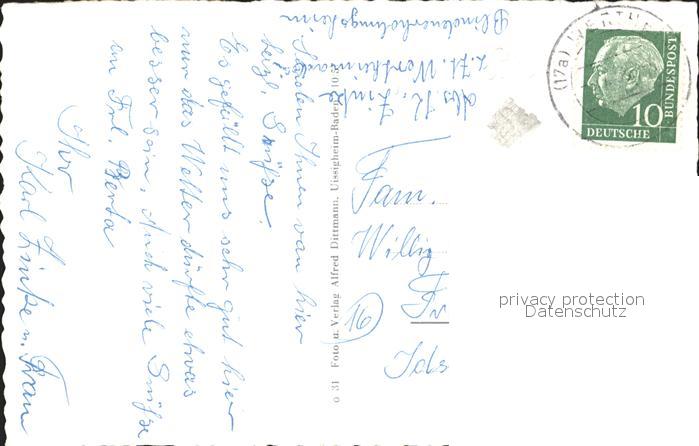 Abs. K. Finke
z. Zt. Wertheim a.
Blindenerholungsheim
Senden Ihnen von hier
herzl. Grüße.
Es gefällt uns sehr gut hier
nur das Wetter dürfte etwas
besser sein. Auch viele Grüße
an Frl. Berta
Ihr
Karl Finke u. Frau
o 31 Foto u. Verlag Alfred Dittmann, Uissigheim-Baden
Fam.
Willi
(16)
Ids
(17a) WERTHEIM
10
DEUTSCHE
BUNDESPOST
privacy protection
Datenschutz